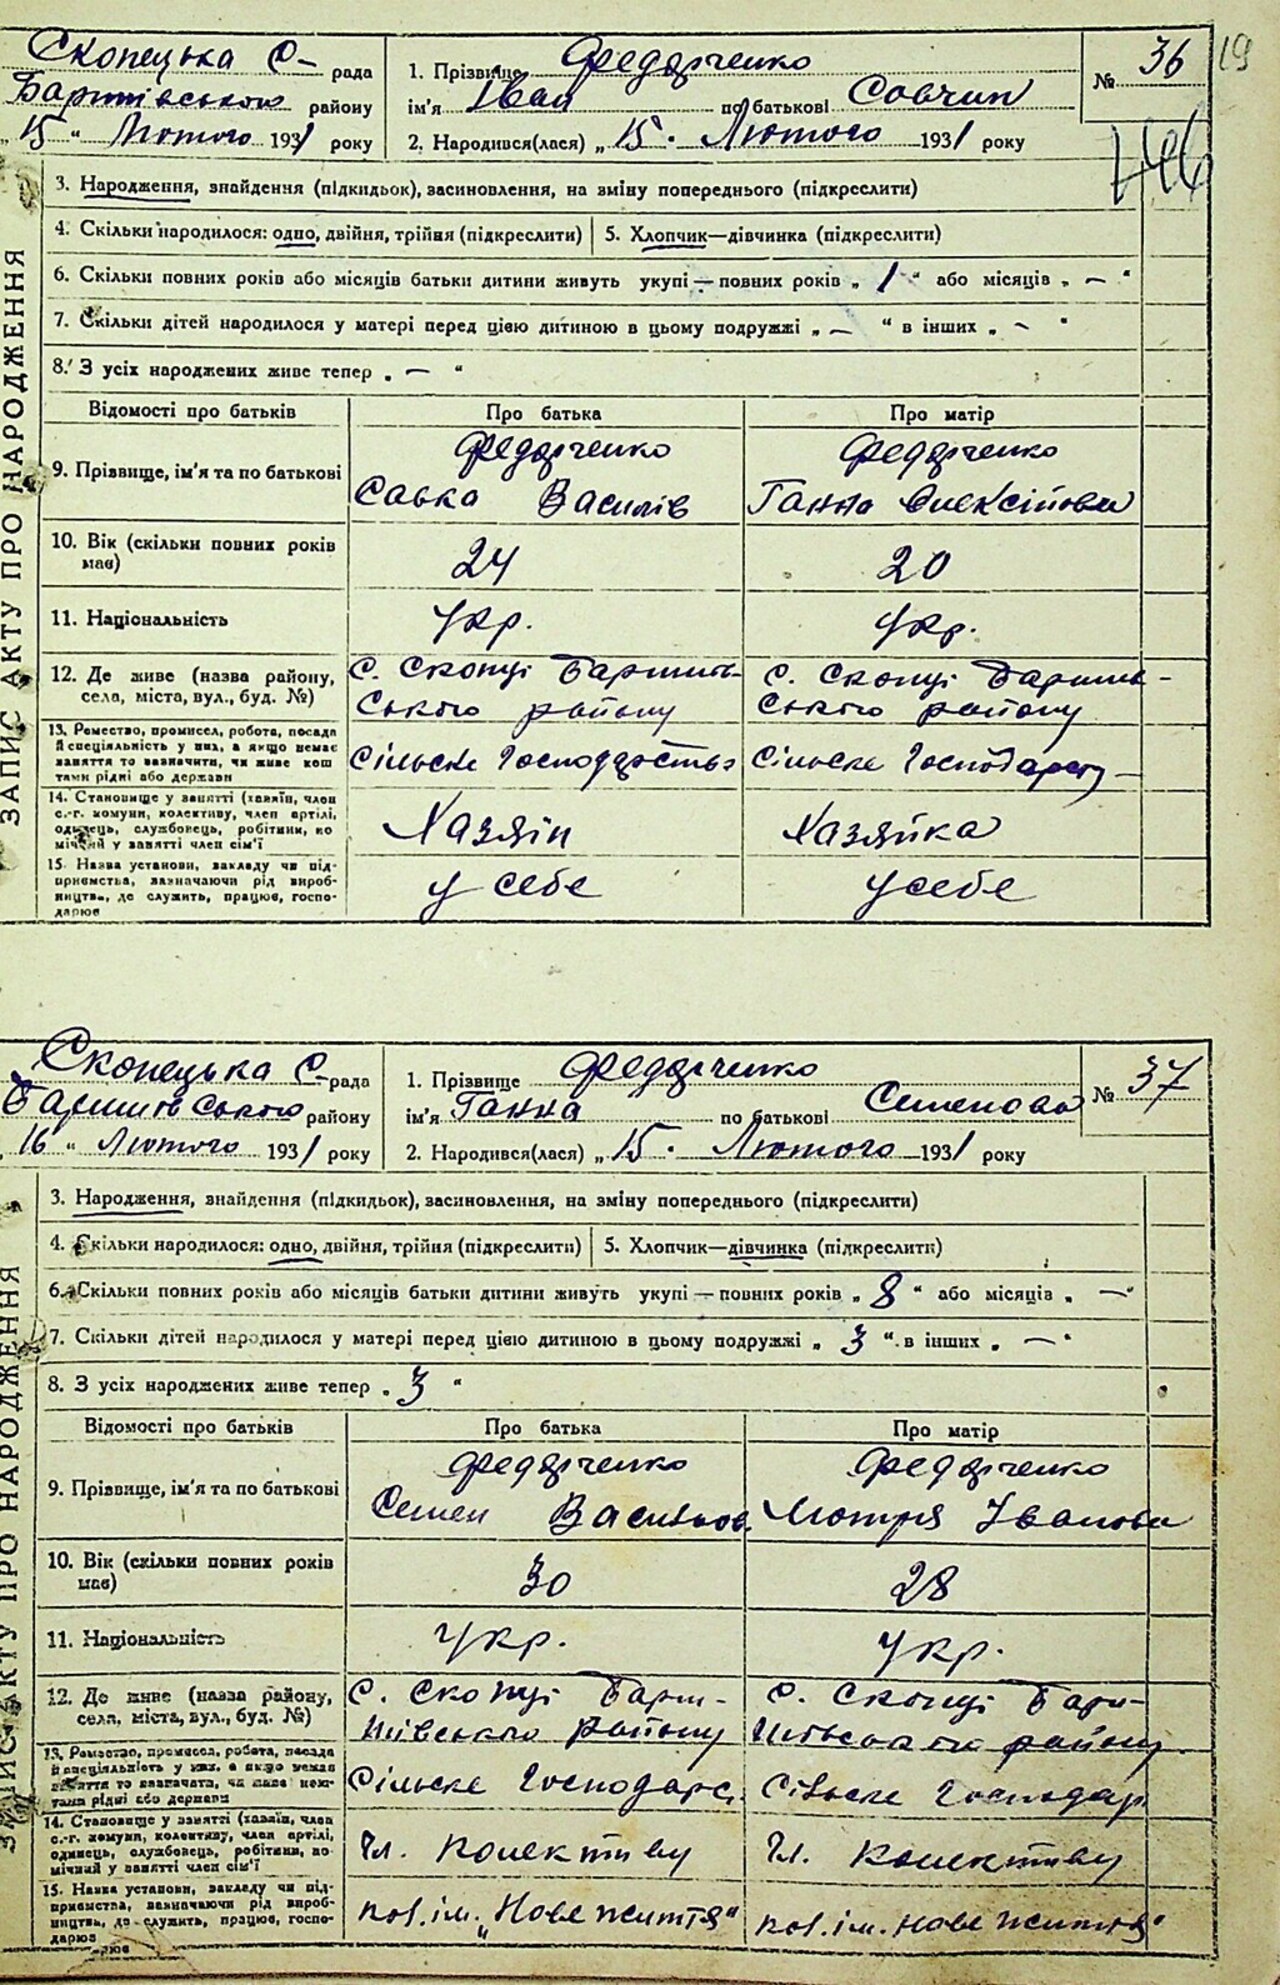 19
Скопецька С- рада
Баришівського району
„15“ Лютого 1931 року
1. Прізвище Федорченко
ім'я Іван по батькові Совчин
2. Народився(лася) „15. Лютого 1931 року
№ 36
ЗАПИС АКТУ ПРО НАРОДЖЕННЯ
3. Народження, знайдення (підкидьок), засиновлення, на зміну попереднього (підкреслити)
4. Скільки народилося: одно, двійня, трійня (підкреслити) 5. Хлопчик—дівчинка (підкреслити)
6. Скільки повних років або місяців батьки дитини живуть укупі — повних років „1“ або місяців „—“
7. Скільки дітей народилося у матері перед цією дитиною в цьому подружжі „—“ в інших „—“
8. З усіх народжених живе тепер „—“
Відомості про батьків Про батька Про матір
9. Прізвище, ім'я та по батькові
Федорченко Савка Василів
Федорченко Ганна Олексійовна
10. Вік (скільки повних років має) 24 20
11. Національність Укр. Укр.
12. Де живе (назва району, села, міста, вул., буд. №)
с. Скопці Баришів-
ського району
с. Скопці Баришів-
ського району
13. Ремество, промисел, робота, посада
й спеціяльність у них, а якщо немає
заняття то зазначити, чи живе кош
тами рідні або держави
Сільске Господарство Сільске Господарств
14. Становище у занятті (хазяїн, член
с.-г. комуни, колективу, член артілі,
одинець, службовець, робітник, по
мічний у занятті член сім'ї
Хазяін Хазяйка
15. Назва установи, закладу чи під-
приємства, зазначаючи рід вироб-
ництва, де служить, працює, госпо-
дарює
у себе у себе
Скопецька С- рада
Баришівського району
„16“ Лютого 1931 року
1. Прізвище Федорченко
ім'я Ганна по батькові Семенова
2. Народився(лася) „15. Лютого 1931 року
№ 37
ЗАПИС АКТУ ПРО НАРОДЖЕННЯ
3. Народження, знайдення (підкидьок), засиновлення, на зміну попереднього (підкреслити)
4. Скільки народилося: одно, двійня, трійня (підкреслити) 5. Хлопчик—дівчинка (підкреслити)
6. Скільки повних років або місяців батьки дитини живуть укупі — повних років „8“ або місяців „—“
7. Скільки дітей народилося у матері перед цією дитиною в цьому подружжі „3“ в інших „—“
8. З усіх народжених живе тепер „3“
Відомості про батьків Про батька Про матір
9. Прізвище, ім'я та по батькові
Федорченко Семен Васильов.
Федорченко Мотря Іванова
10. Вік (скільки повних років має) 30 28
11. Національність Укр. Укр.
12. Де живе (назва району, села, міста, вул., буд. №)
с. Скопці Бари-
шівського району
с. Скопці Бари-
шівського району
13. Ремество, промисел, робота, посада
й спеціяльність у них, а якщо немає
заняття то зазначити, чи живе кош-
тами рідні або держави
Сільске Господарс. Сільске Господар
14. Становище у занятті (хазяїн, член
с.-г. комуни, колективу, член артілі,
одинець, службовець, робітник, по
мічний у занятті член сім'ї
Чл. колективу Чл. колективу
15. Назва установи, закладу чи під-
приємства, зазначаючи рід вироб-
ництва, де служить, працює, госпо-
дарює
кол. ім. „Нове життя“ кол. ім. Нове життя“